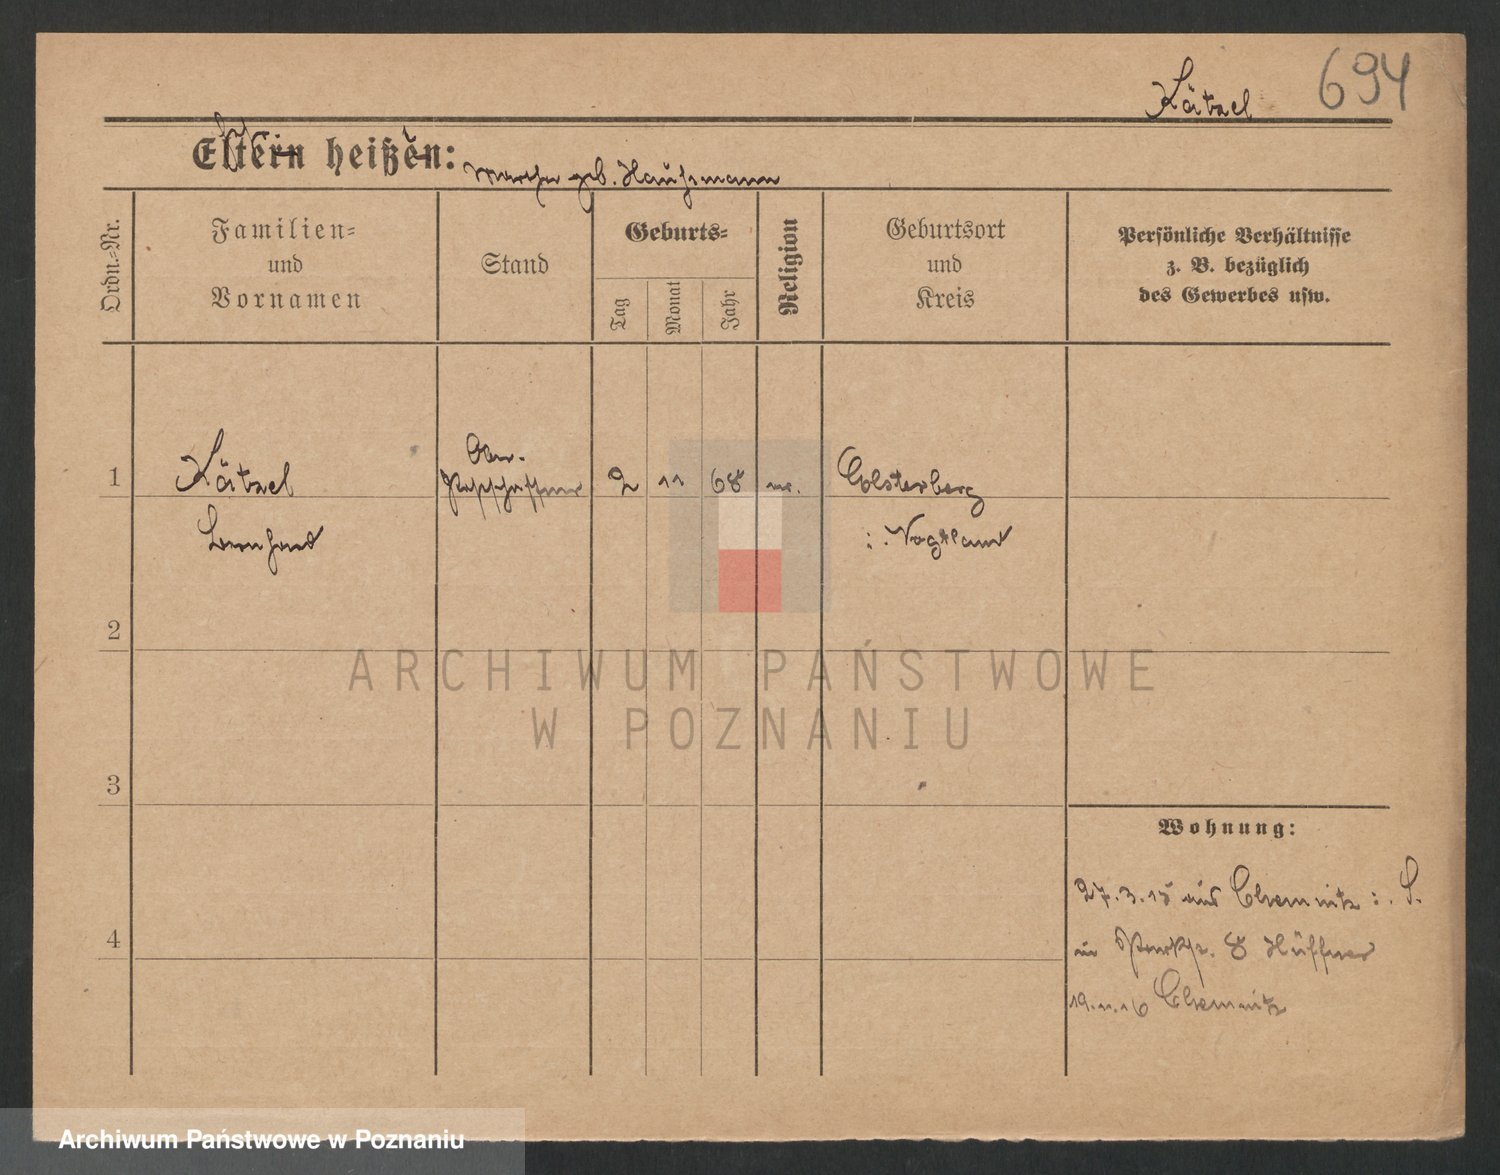 Kätzel 694
Eltern heißen:
Martha geb. Haußmann
Ordn.-Nr.
Familien-
und
Vornamen
Stand
Geburts-
Tag
Monat
Jahr
Religion
Geburtsort
und
Kreis
Persönliche Verhältnisse
z. B. bezüglich
des Gewerbes usw.
1
Kätzel
Bernhard
Ober-
Postschaffner
2 11 68
Elsterberg
i. Vogtland
2
3
4
Wohnung:
27.3.15 aus Chemnitz i. S.
in Parkstr. 8 Hüffner
19.11.16 Chemnitz
ARCHIWUM PAŃSTWOWE
W POZNANIU
Archiwum Państwowe w Poznaniu